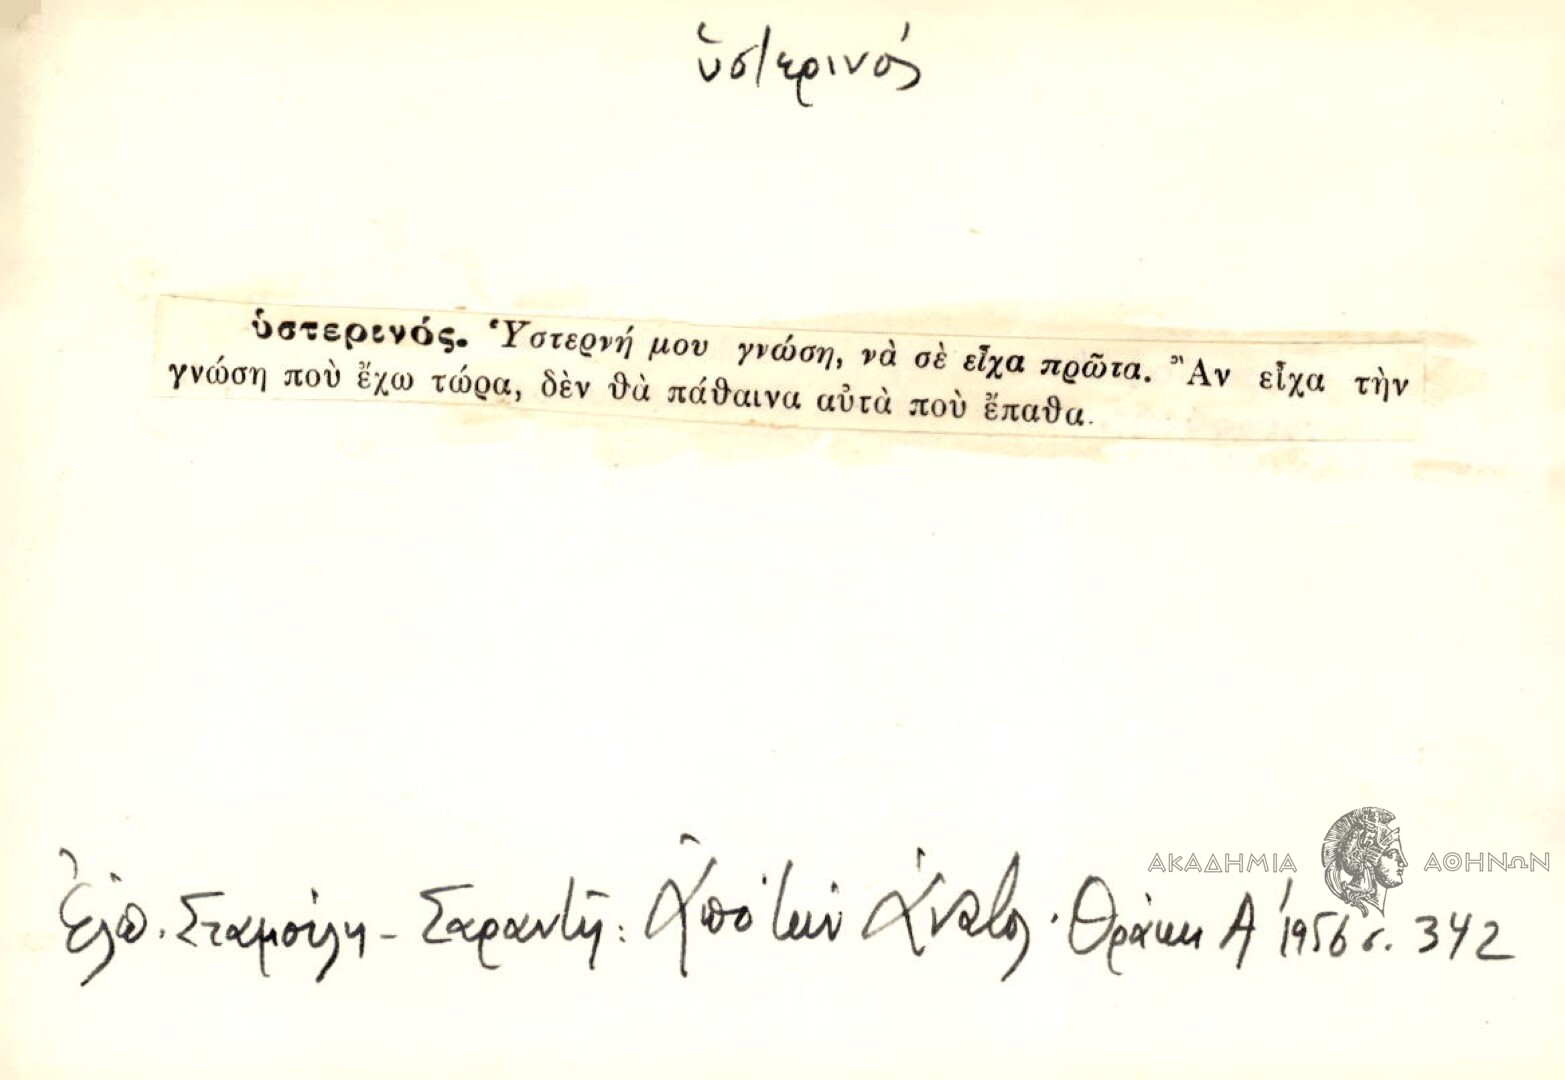 ὑστερινός
ὑστερινός. Ὑστερνή μου γνώση, νὰ σὲ εἶχα πρῶτα. Ἂν εἶχα τὴν
γνώση ποὺ ἔχω τώρα, δὲν θὰ πάθαινα αὐτὰ ποὺ ἔπαθα.
ΑΚΑΔΗΜΙΑ ΑΘΗΝΩΝ
Ἐλπ. Σταμούλη - Σαραντῆ: Ἀπὸ τὴν Ἀνατολ. Θράκη Α' 1956 σ. 342